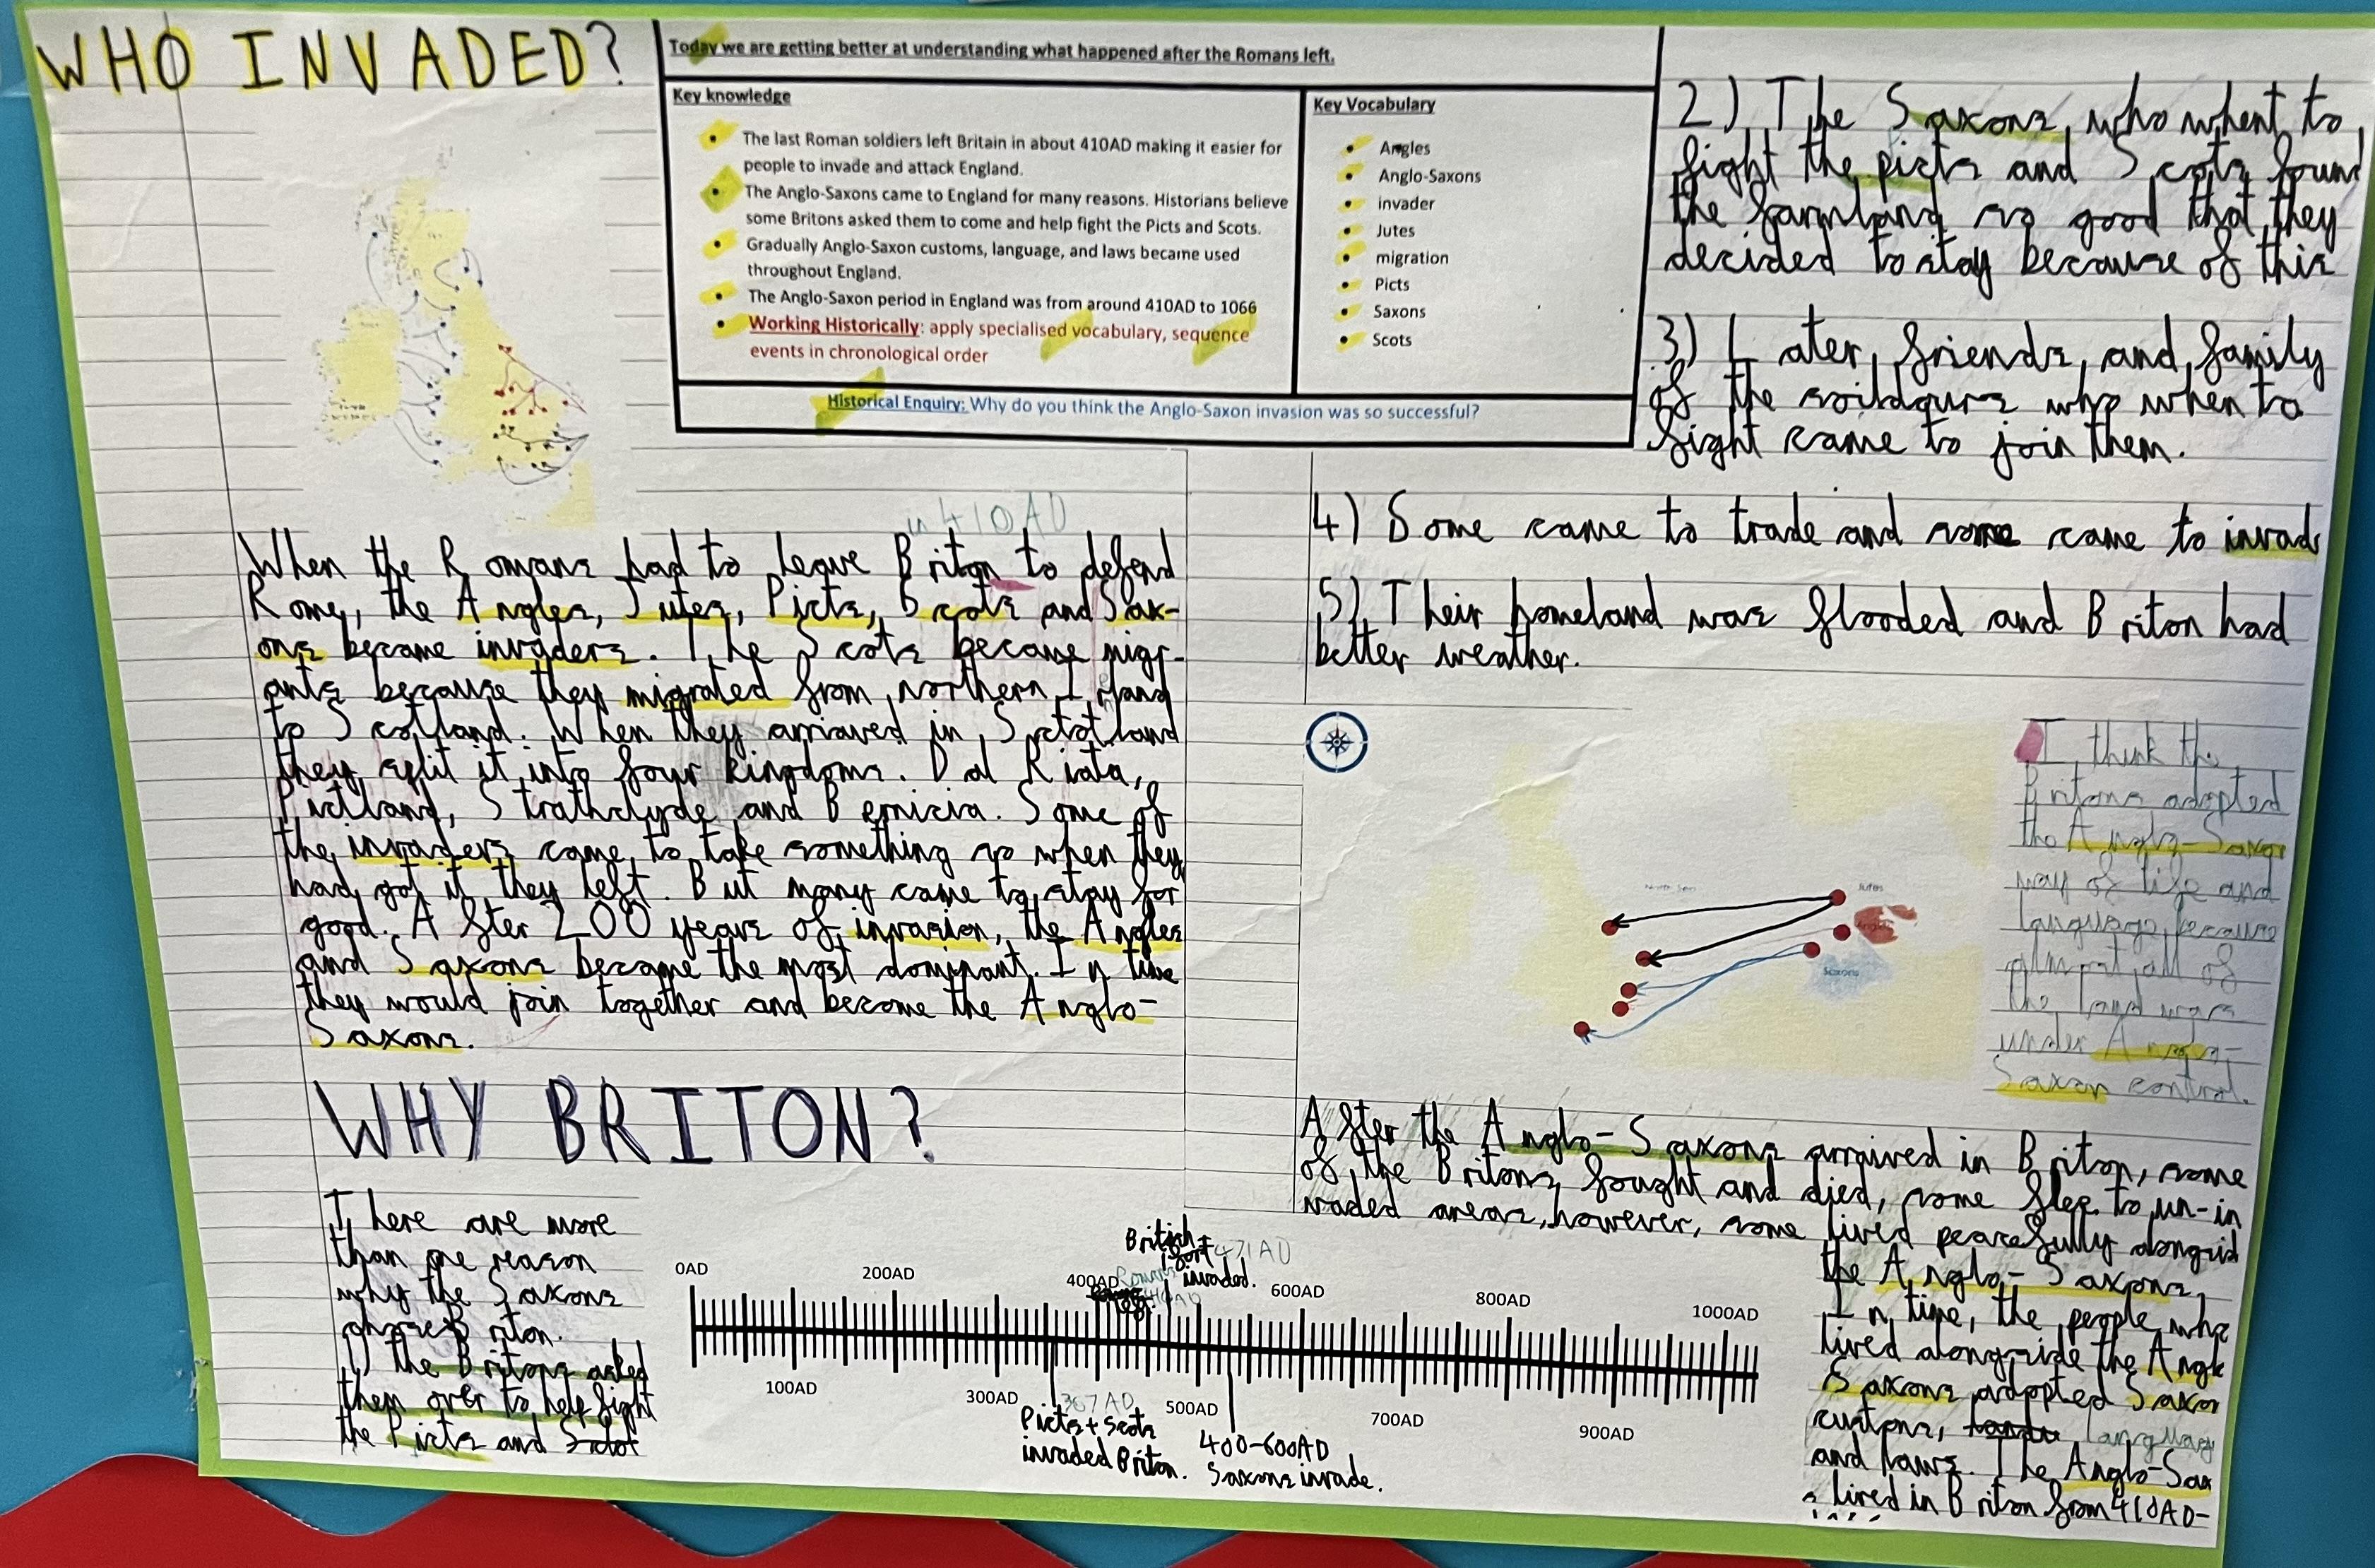 WHO INVADED?
Today we are getting better at understanding what happened after the Romans left.
Key knowledge
The last Roman soldiers left Britain in about 410AD making it easier for
people to invade and attack England.
The Anglo-Saxons came to England for many reasons. Historians believe
some Britons asked them to come and help fight the Picts and Scots.
Gradually Anglo-Saxon customs, language, and laws became used
throughout England.
The Anglo-Saxon period in England was from around 410AD to 1066
Working Historically: apply specialised vocabulary, sequence
events in chronological order
Key Vocabulary
Angles
Anglo-Saxons
invader
Jutes
migration
Picts
Saxons
Scots
Historical Enquiry: Why do you think the Anglo-Saxon invasion was so successful?
in 410AD
When the Romans had to leave Briton to defend
Rome, the Angles, Jutes, Picts, Scots and Sax-
ons became invaders. The Scots became migr-
ants because they migrated from northern Irland
to Scotland. When they arriaved in Sctotland
they split it into four kingdoms. Dal Riata,
Pictland, Strathclyde and Bernicia. Some of
the invaders came to take something so when they
had got it they left. But many came to stay for
good. After 200 years of invasion, the Angles
and Saxons became the most dominant. In time
they would join together and become the Anglo-
Saxons.
WHY BRITON?
There are more
than one reason
why the Saxons
chose Briton.
1) the Britons asked
them over to help fight
the Picts and
2) The Saxons, who whent to
fight the picts and Scots found
the farmland so good that they
decided to stay because of this
3) Later, friends, and family
of the soildgurs who when to
fight came to join them.
4) Some came to trade and some came to invad
5) Their homeland was flooded and Briton had
better weather.
North Sea
Jutes
Angles
Saxons
I think the
Britons adopted
the Anglo-Saxon
way of life and
language because
almost all of
the land was
under Anglo-
Saxon control.
After the Anglo-Saxons arraived in Briton, some
of the Britons fought and died, some flee to un-in
vaded areas, however, some lived peacefully alongsid
the Anglo-Saxons.
In time, the people who
lived alongside the Anglo
Saxons adopted Saxon
customs, language
and laws. The Anglo-Sax
s lived in Briton from 410AD-
British fort 471AD
invaded.
Romans
left. 410AD
0AD
200AD
400AD
600AD
800AD
1000AD
100AD
300AD
500AD
700AD
900AD
367AD
Picts + Scots
invaded Briton.
400-600AD
Saxons invade.